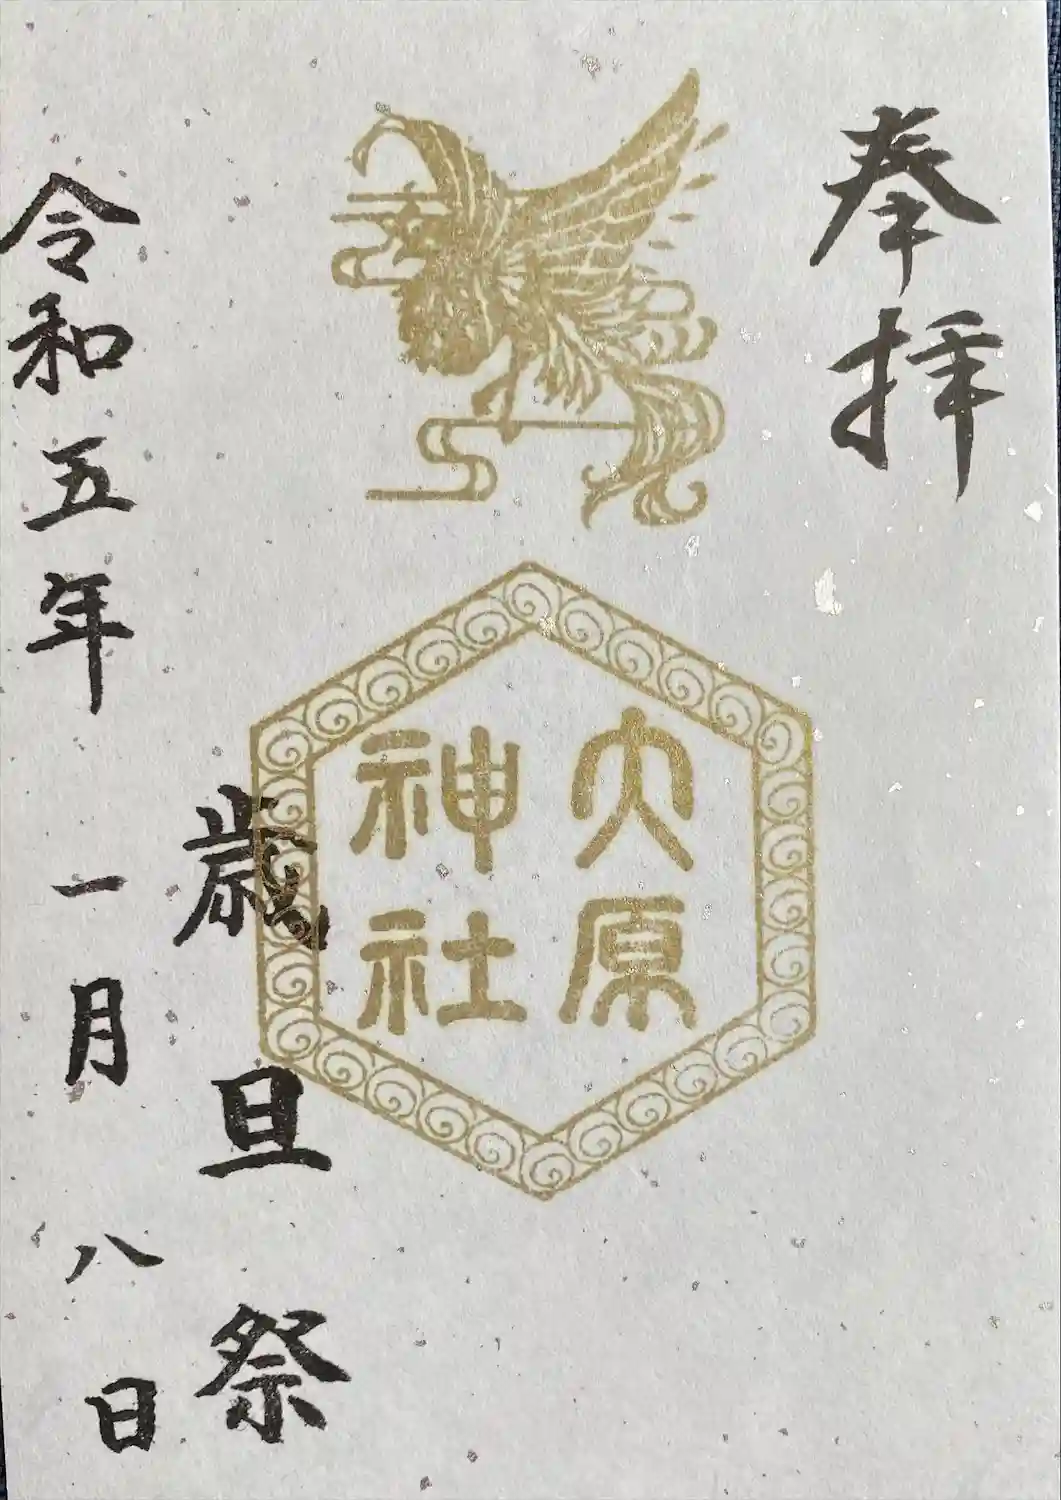 奉拝
大原
神社
歳旦祭
令和五年一月八日